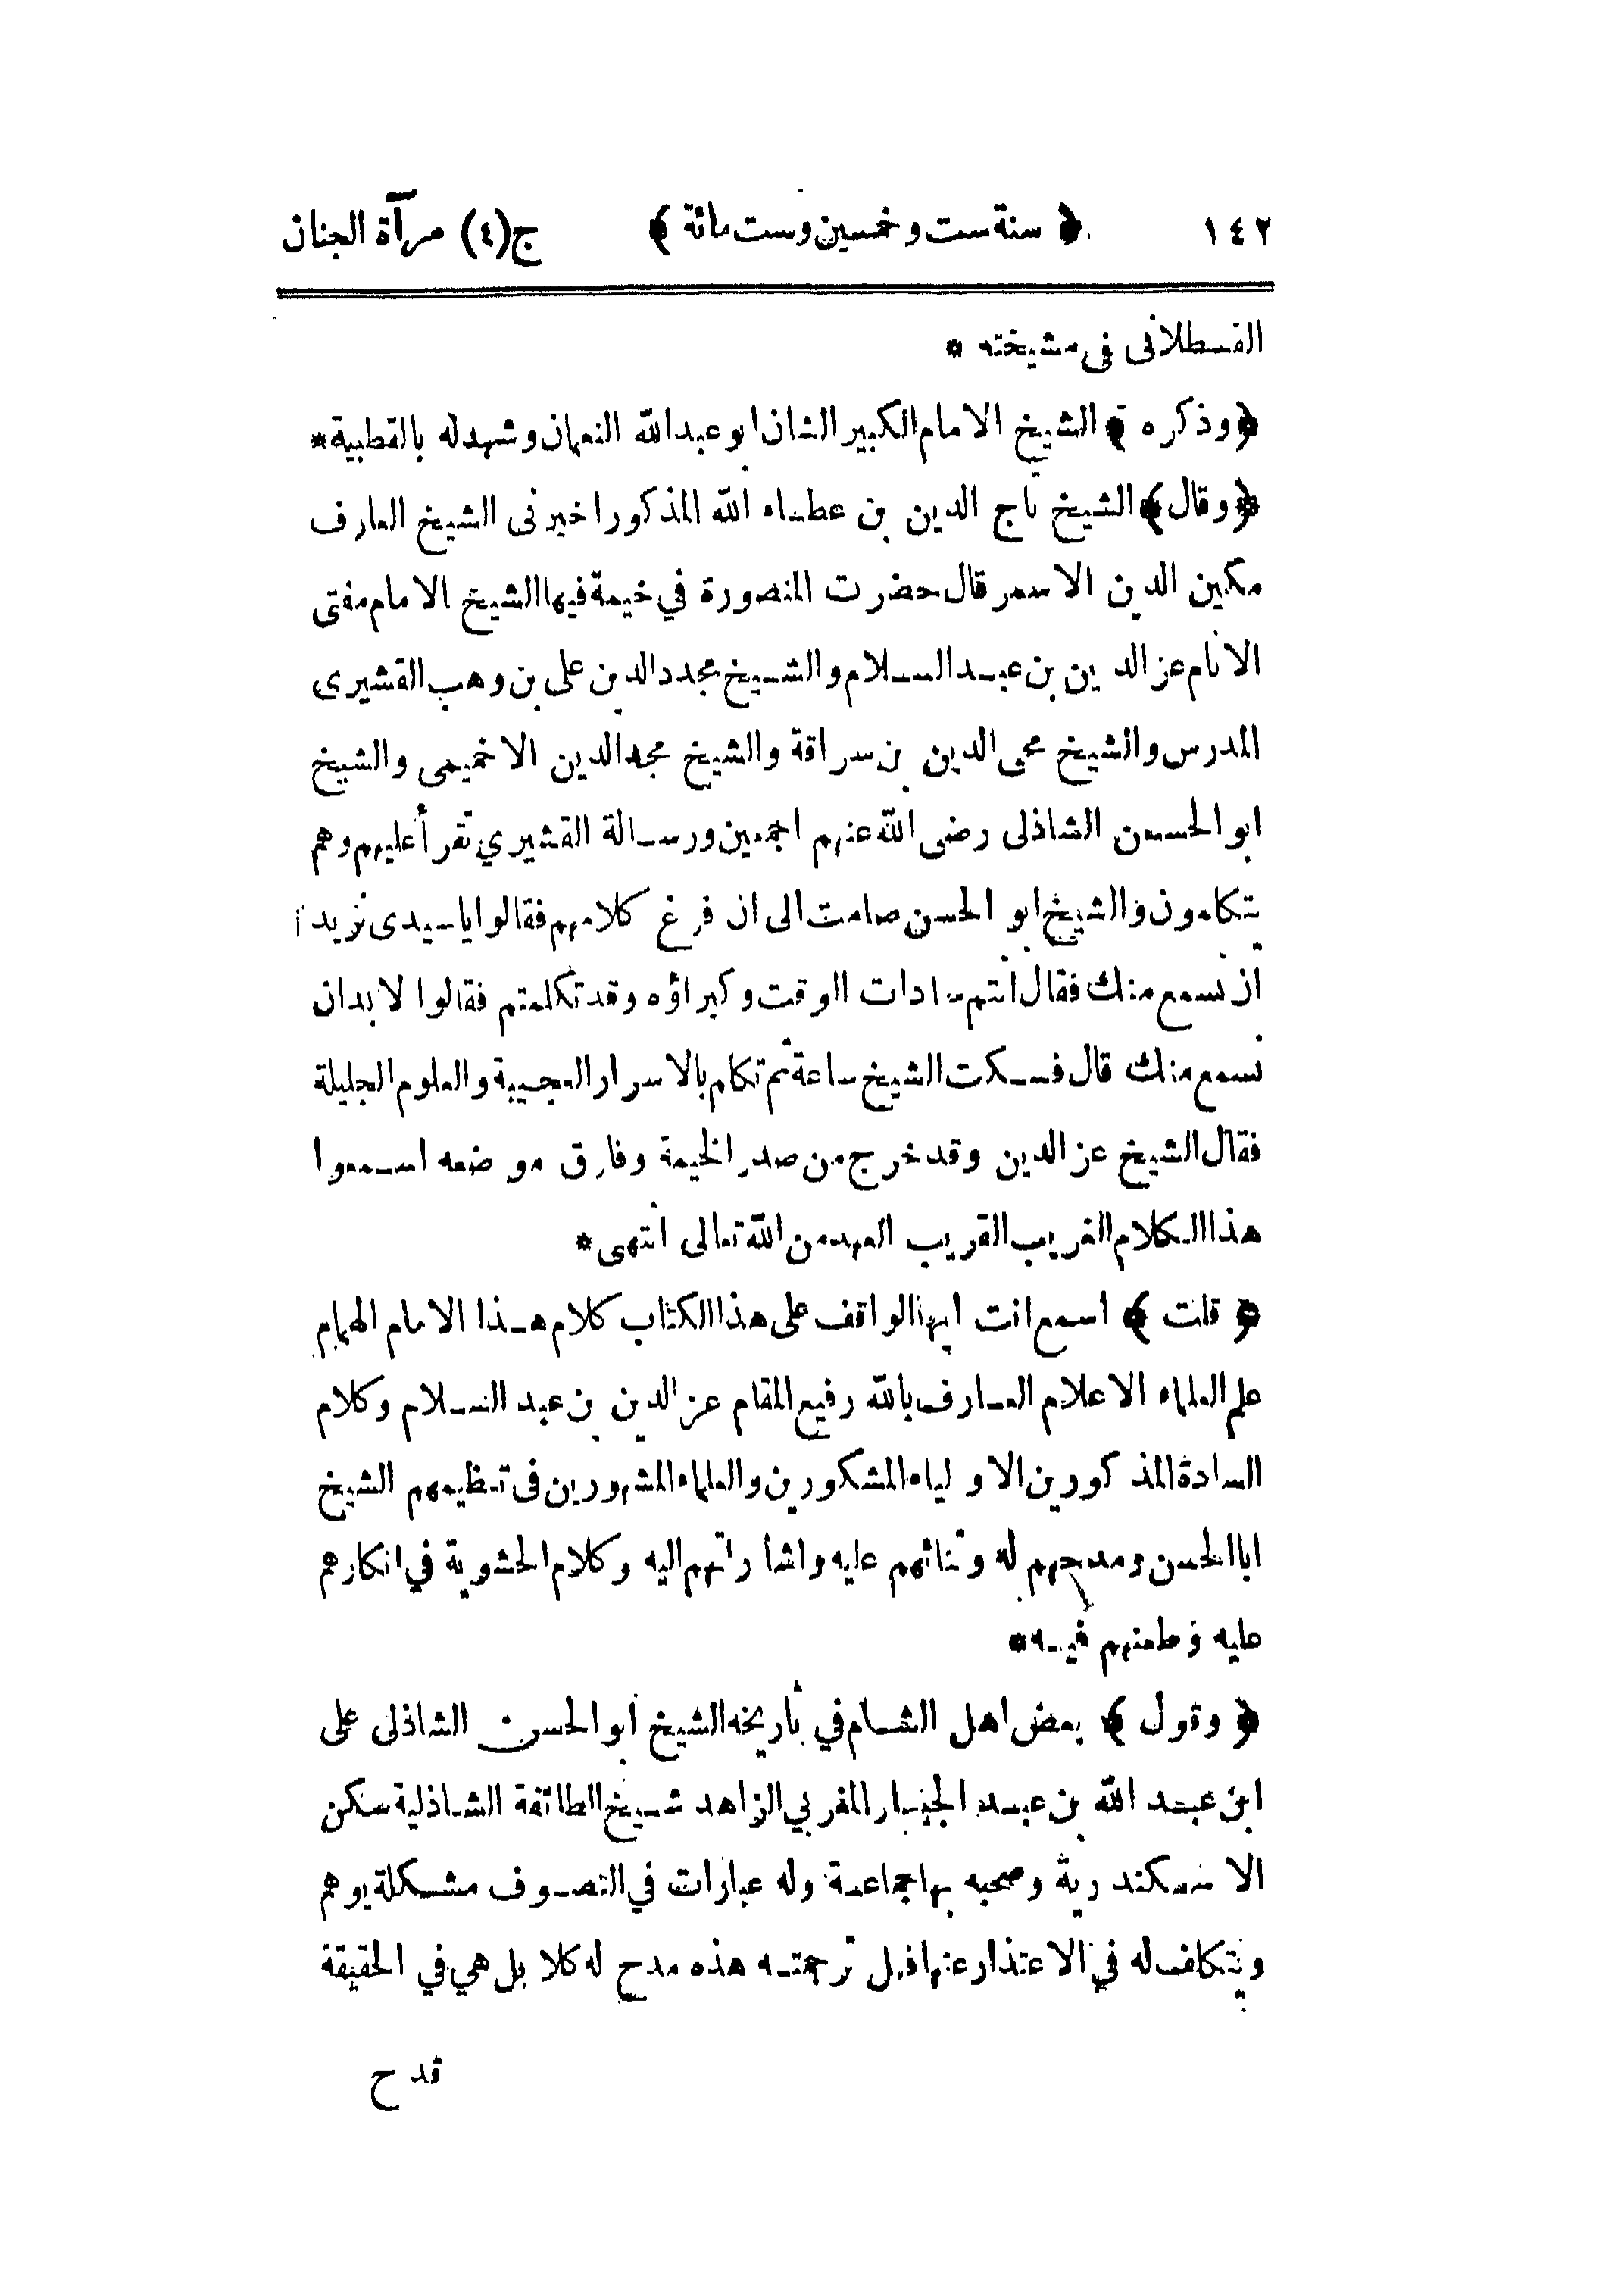 ١٤٢ ﴿ سنة ست وخمسين وست مائة ﴾ ج(٤) مرآة الجنان
القسطلانى فى مشيخته *
﴿وذكره﴾ الشيخ الامام الكبير الشان ابو عبدالله النعمان وشهد له بالقطبية*
﴿وقال﴾ الشيخ تاج الدين بن عطاء الله المذكور اخبرنى الشيخ العارف
مكين الدين الاسمر قال حضرت المنصورة في خيمة فيها الشيخ الامام مفتى
الانام عز الدين بن عبد السلام والشيخ مجدد الدين على بن وهب القشيرى
المدرس والشيخ محى الدين بن سراقة والشيخ مجد الدين الاخميمى والشيخ
ابو الحسن الشاذلى رضى الله عنهم اجمعين ورسالة القشيري تقرأ عليهم وهم
يتكلمون والشيخ ابو الحسن صامت الى ان فرغ كلامهم فقالوا يا سيدى نريد
ان نسمع منك فقال انتم سادات الوقت وكبراؤه وقد تكلمتم فقالوا لا بد ان
نسمع منك قال فسكت الشيخ ساعة ثم تكلم بالاسرار العجيبة والعلوم الجليلة
فقال الشيخ عز الدين وقد خرج من صدر الخيمة وفارق موضعه اسمعوا
هذا الكلام الغريب القريب العهد من الله تعالى انتهى*
﴿ قلت ﴾ اسمع انت ايها الواقف على هذا الكتاب كلام هذا الامام الهمام
علم العلماء الاعلام العارف بالله رفيع المقام عز الدين بن عبد السلام وكلام
السادة المذكورين الاولياء المشكورين والعلماء المشهورين فى تعظيمهم الشيخ
ابا الحسن ومدحهم له وثنائهم عليه واشاراتهم اليه وكلام الحشوية في انكارهم
عليه وطعنهم فيه*
﴿ وقول ﴾ بعض اهل الشام في تأريخه الشيخ ابو الحسن الشاذلى على
ابن عبد الله بن عبد الجبار المغربي الزاهد شيخ الطائفة الشاذلية سكن
الاسكندرية وصحبه بها جماعة وله عبارات في التصوف مشكلة يوهم
ويتكلف له في الاعتذار عنها فهل ترجمته هذه مدح له كلا بل هي في الحقيقة
قدح